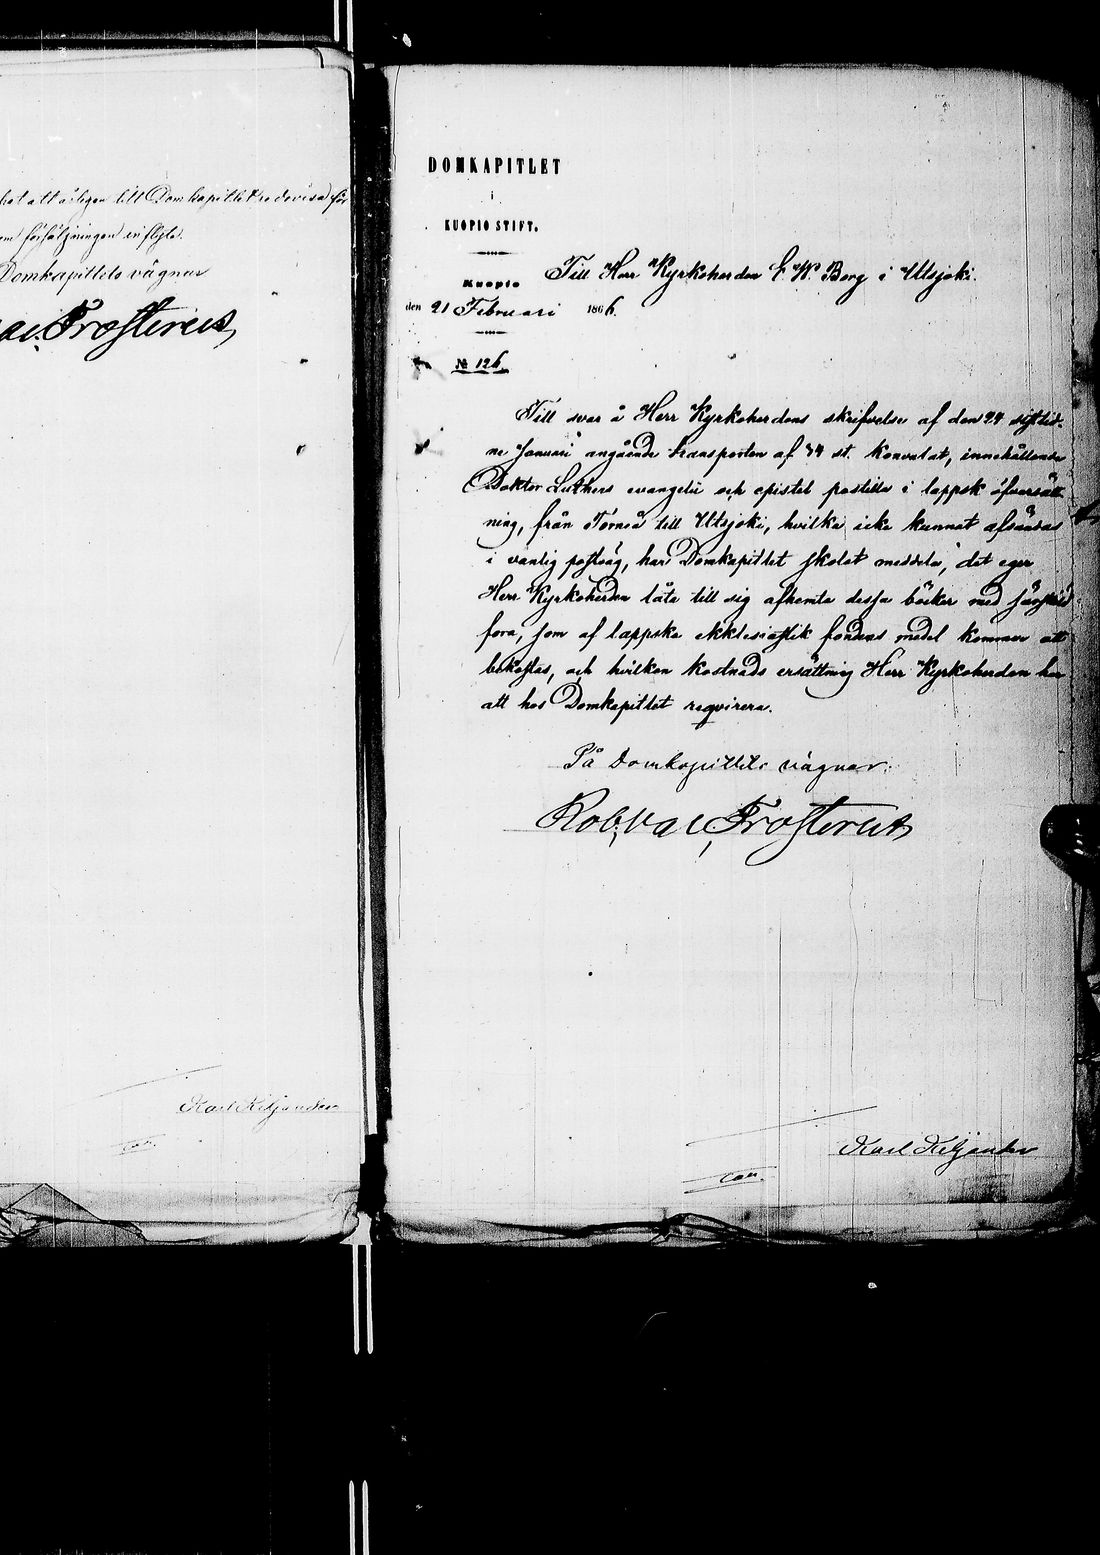 att årligen till Domkapitlet redovisa för
försäljningen influtit.
Domkapitlets vägnar
Frosterus
Karl Kiljander
DOMKAPITLET
i
KUOPIO STIFT.
Kuopio
den 21 Februari 1866.
№ 126.
Till Herr Kyrkoherden E. W. Borg i Utsjoki.
Till svar å Herr Kyrkoherdens skrifvelse af den 24 sistlid-
ne Januari angående transporten af 34 st. konvolut, innehållande
Doktor Luthers evangelii och epistel postilla i lappsk öfversätt-
ning, från Torneå till Utsjoki, hvilka icke kunnat afsändas
i vanlig postväg, har Domkapitlet skolat meddela, det eger
Herr Kyrkoherden låta till sig afhemta dessa böcker med särskild
fora, som af lappska ekklesiastik fondens medel kommer att
bekostas, och hvilken kostnads ersättning Herr Kyrkoherden har
att hos Domkapitlet reqvirera.
På Domkapitlets vägnar:
Rob. Val. Frosterus
Karl Kiljander